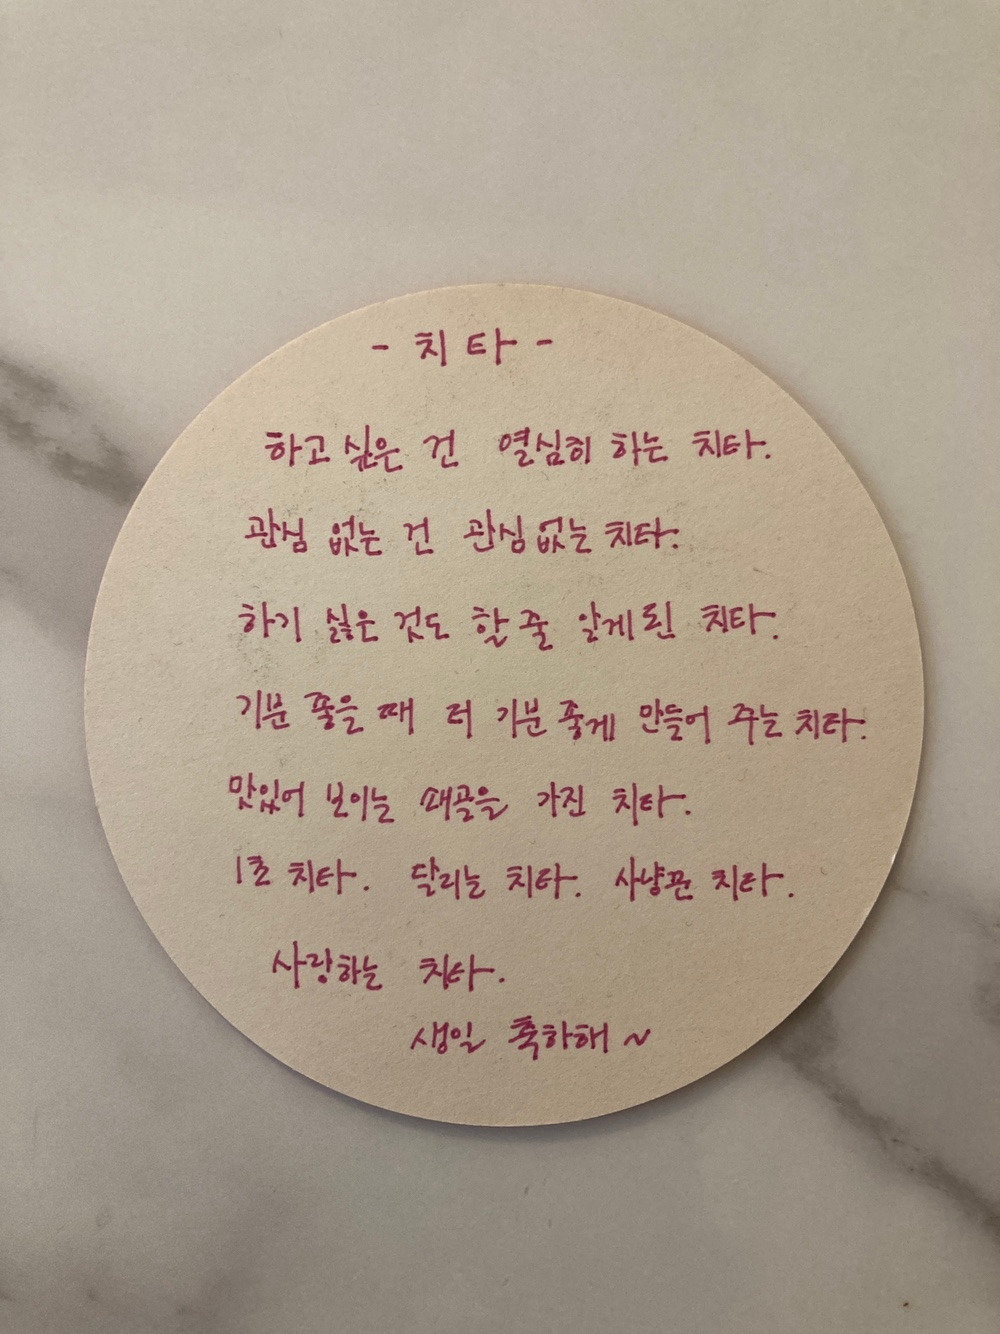 - 치타 -
하고 싶은 건 열심히 하는 치타.
관심 없는 건 관심 없는 치타.
하기 싫은 것도 할 줄 알게 된 치타.
기분 좋을 때 더 기분 좋게 만들어 주는 치타.
맛있어 보이는 쇄골을 가진 치타.
1초 치타. 달리는 치타. 사냥꾼 치타.
사랑하는 치타.
생일 축하해~